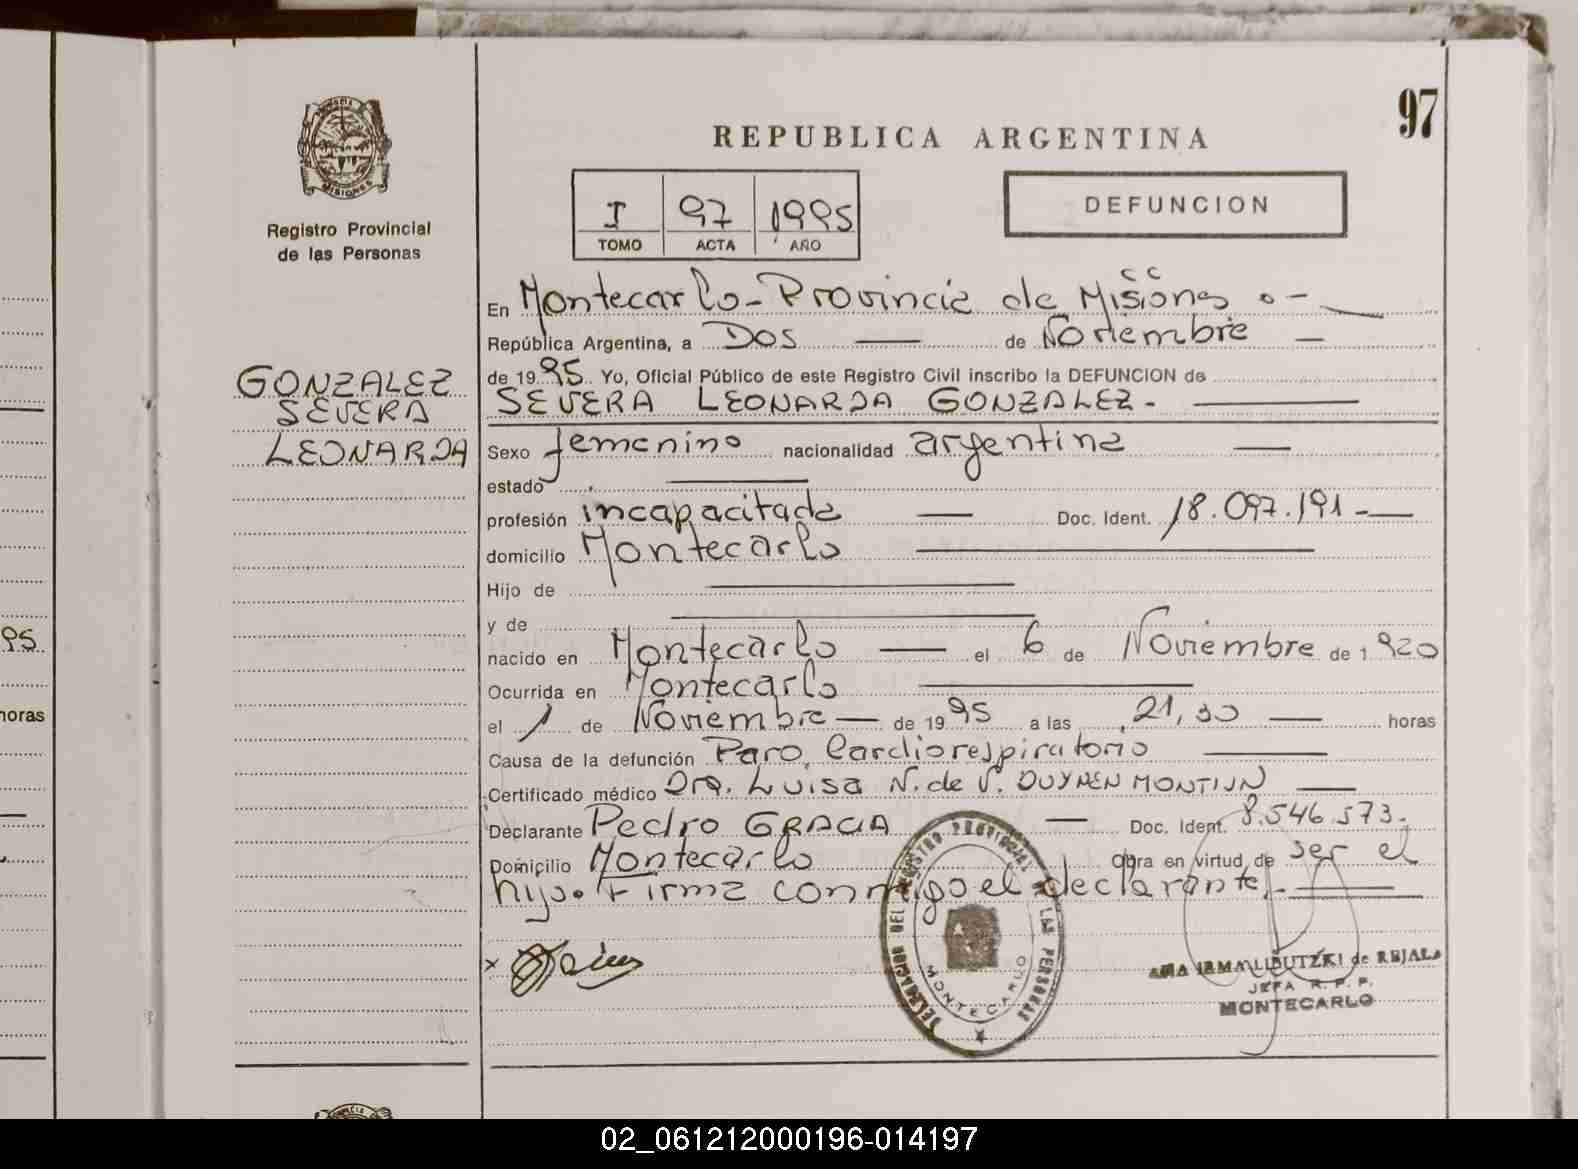 97
REPUBLICA ARGENTINA
PROVINCIA DE
MISIONES
Registro Provincial
de las Personas
I 97 1995
TOMO ACTA AÑO
DEFUNCION
GONZALEZ
SEVERA
LEONARDA
En Montecarlo - Provincia de Misiones
República Argentina, a Dos de Noviembre
de 1995 Yo, Oficial Público de este Registro Civil inscribo la DEFUNCION de
SEVERA LEONARDA GONZALEZ.-
Sexo femenino nacionalidad argentina
estado
profesión incapacitada Doc. Ident. 18.097.191.-
domicilio Montecarlo
Hijo de
y de
nacido en Montecarlo el 6 de Noviembre de 1920
Ocurrida en Montecarlo
el 1 de Noviembre de 1995 a las 21,30 horas
Causa de la defunción Paro Cardiorespiratorio
Certificado médico Dra. Luisa N. de V. DUYNEN MONTIJN
Declarante Pedro GRACIA Doc. Ident. 8.546.573.
Domicilio Montecarlo Obra en virtud de ser el
hijo. Firma conmigo el declarante.-
DELEGACION DEL REGISTRO PROVINCIAL DE LAS PERSONAS
MONTECARLO
ANA IRMA LIBUTZKI de REJALA
JEFA R. P. P.
MONTECARLO
95.
horas
02_061212000196-014197